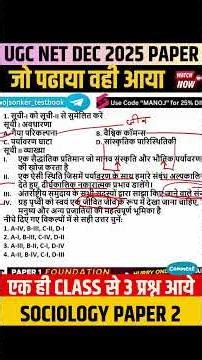 UGC NET DEC 2025 PAPER
जो पढाया वही आया
WATCH NOW
wojsonker_testbook
Use Code "MANOJ" for 25% DI
1. सूची-I को सूची-II से सुमेलित करें
सूची I अवधारणा
A. नया परिकल्पना
B. वैश्विक कॉमन्स
C. पर्यावरण घाटा
D. सांस्कृतिक पारिस्थितिकी
सूची II व्याख्या
I एक सैद्धांतिक प्रतिमान जो मानव संस्कृति और भौतिक पर्यावरण
की खोज करता है
II. एक ऐसी स्थिति जिसमें पर्यावरण के साथ हमारे संबंध अल्पकालिक
देते हुए, दीर्घकालिक नकारात्मक प्रभाव डालेंगे।
III. अंतर्राष्ट्रीय समुदाय के सभी सदस्यों द्वारा साझा किए जाने वाले सं
IV. ग्रह पृथ्वी को स्वयं एक जीवित जीव के रूप में देखा जाना चाहिए,
मनुष्य और अन्य प्रजातियों की महत्वपूर्ण भूमिका है
नीचे दिए गए विकल्पों में से सही उत्तर चुनें:
1. A-IV, B-III, C-II, D-I
2. A-I, B-III, C-IV, D-II
3. A-III, B-II, C-I, D-IV
4. A-II, B-IV, C-III, D-I
PAPER 1 FOUNDATION
HURRY
Comment
एक ही CLASS से 3 प्रश्न आये
SOCIOLOGY PAPER 2